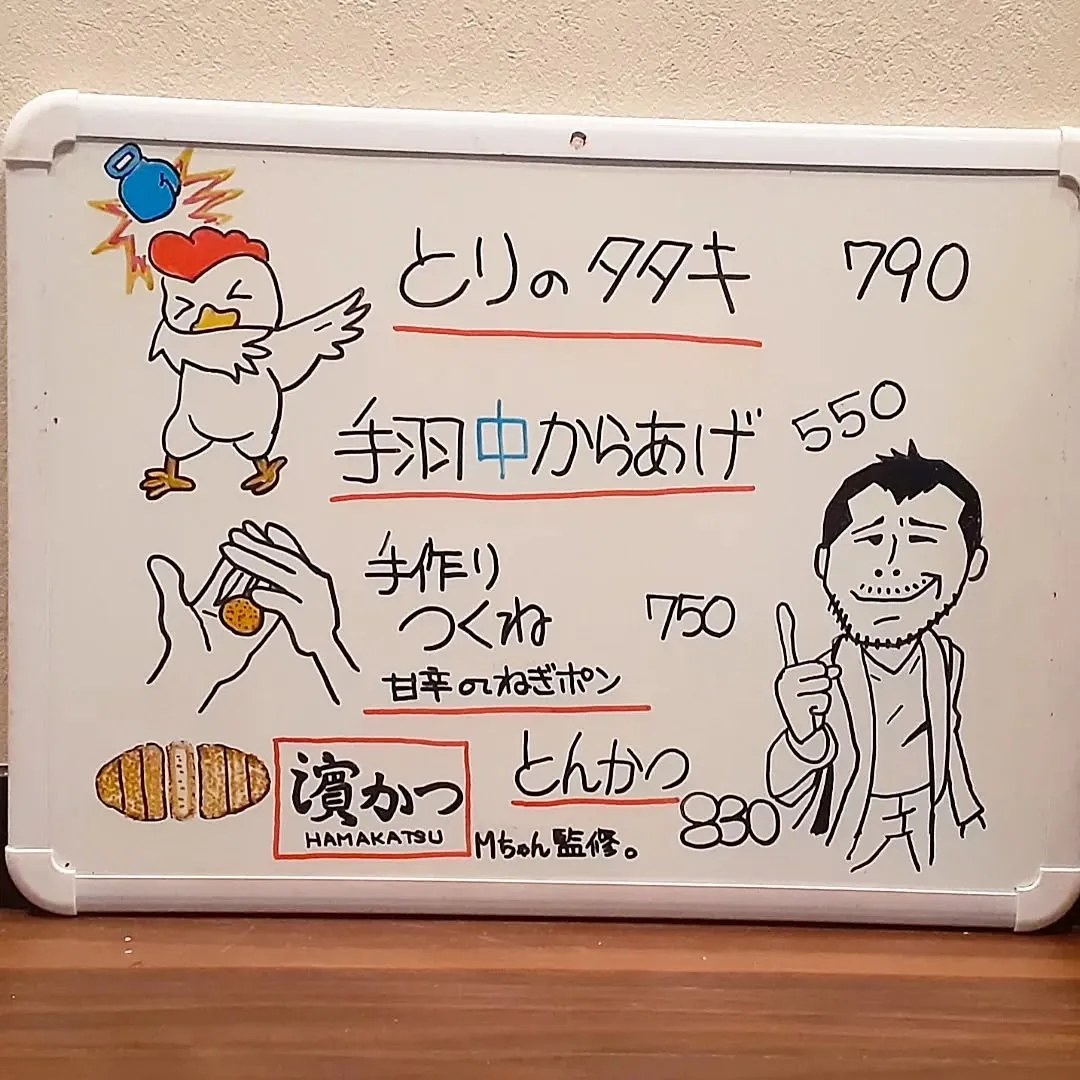 とりのタタキ 790
手羽中からあげ 550
手作り
つくね 750
甘辛のねぎポン
とんかつ 830
濵かつ
HAMAKATSU
Mちゃん監修。